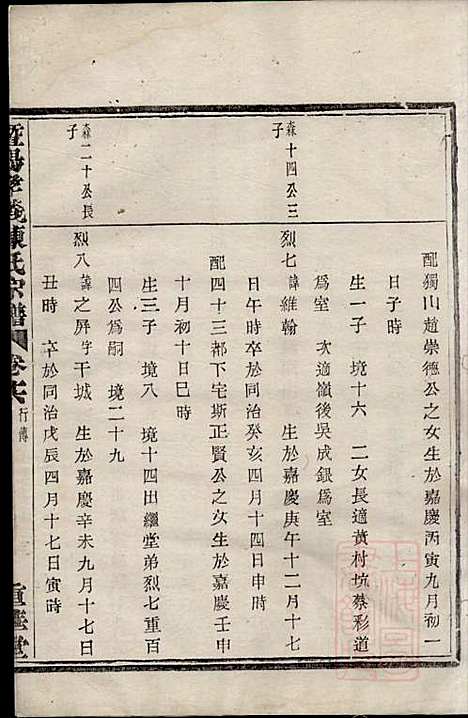 配獨山趙崇德公之女生於嘉慶丙寅九月初一
日子時
生一子 境十六 二女長適黃村坑蔡彩道
為室 次適嶺後吳成銀為室
森十四公三
子
烈七 諱維翰 生於嘉慶庚午十二月十七
日午時卒於同治癸亥四月十四日申時
配四十三都下宅斯正賢公之女生於嘉慶壬申
十月初十日巳時
生三子 境八 境十四出繼堂弟烈七重百
四公為嗣 境二十九
森二十公長
子
烈八 諱之屏字干城 生於嘉慶辛未九月十七日
丑時 卒於同治戊辰四月十七日寅時
暨陽孝義陳氏宗譜 卷 行傳